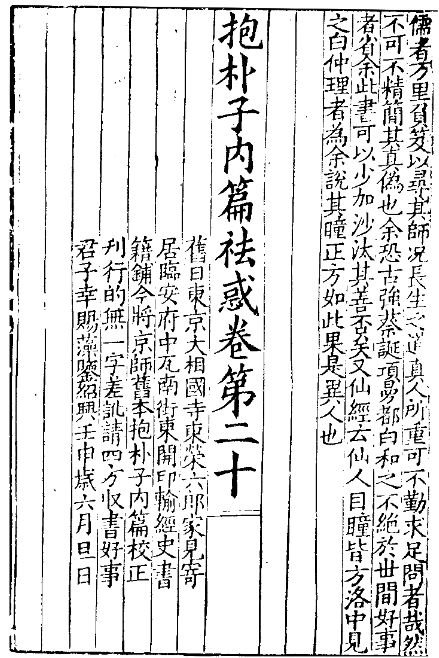 儒者万里負笈以尋其師況長生之道真人所重可不勤求足問者哉然
不可不精簡其真偽也余恐古強蔡誕項曼都白和之不絕於世間好事
者省余此書可以少加沙汰其善否矣又仙經云仙人目瞳皆方洛中見
之白仲理者為余說其瞳正方如此果是異人也
抱朴子內篇祛惑卷第二十
舊日東京大相國寺東榮六郎家見寄
居臨安府中瓦南街東開印輸經史書
籍鋪今將京師舊本抱朴子內篇校正
刊行的無一字差訛請四方收書好事
君子幸賜藻鑒紹興壬申歲六月旦日